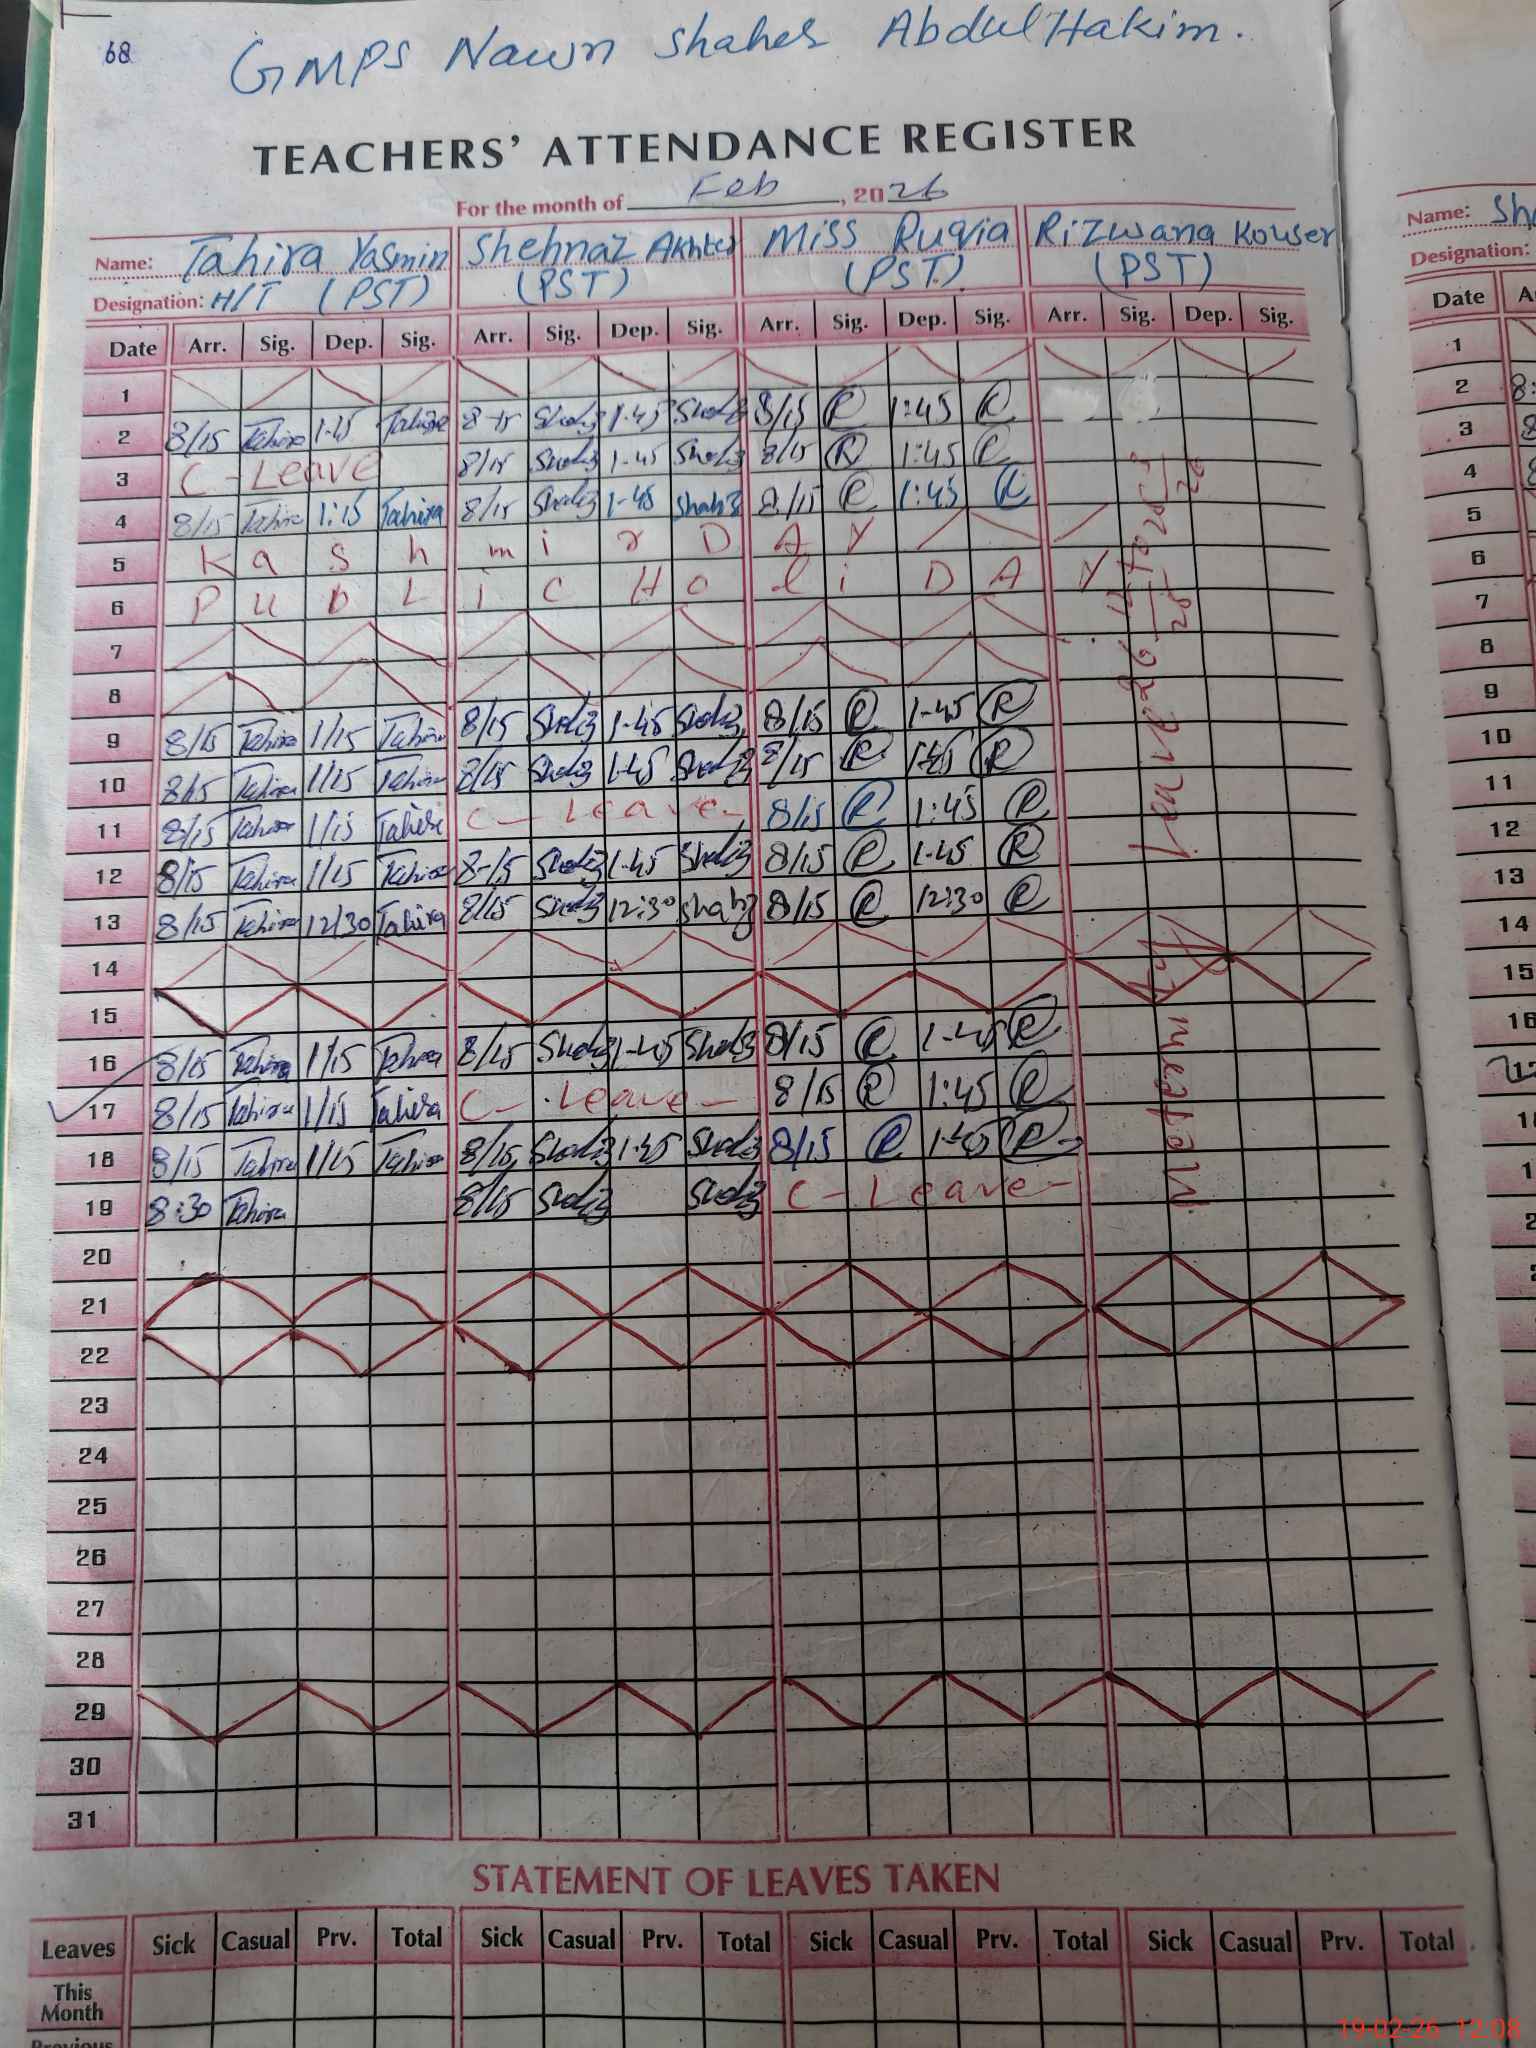 68
GMPS Nawn shaher Abdul Hakim.
TEACHERS' ATTENDANCE REGISTER
For the month of Feb, 2026
Name: Tahira Yasmin Shehnaz Akhter Miss Ruqia Rizwana Kouser
Designation: H/T (PST) (PST) (PST) (PST)
Date Arr. Sig. Dep. Sig. Arr. Sig. Dep. Sig. Arr. Sig. Dep. Sig. Arr. Sig. Dep. Sig.
1
2 8/15 Tahira 1-15 Tahira 8-15 1-45 8/15 R 1:45 R
3 C-Leave 8/15 1-45 8/15 R 1:45 R
4 8/15 Tahira 1:15 Tahira 8/15 1-45 8/15 R 1:45 R
5 Kashmir DAY
6 PubLic HoliDAY
7
8
9 8/15 Tahira 1/15 Tahira 8/15 1-45 8/15 R 1-45 R
10 8/15 Tahira 1/15 Tahira 8/15 1-45 8/15 R 1-45 R
11 8/15 Tahira 1/15 Tahira C-Leave- 8/15 R 1:45 R
12 8/15 Tahira 1/15 Tahira 8-15 1-45 8/15 R 1-45 R
13 8/15 Tahira 12/30 Tahira 8/15 12:30 8/15 R 12:30 R
14
15
16 8/15 Tahira 1/15 Tahira 8/15 1-45 8/15 R 1-45 R
17 8/15 Tahira 1/15 Tahira C-Leave- 8/15 R 1:45 R
18 8/15 Tahira 1/15 Tahira 8/15 1-45 8/15 R 1-45 R
19 8:30 Tahira 8/15 C-Leave-
20
21
22
23
24
25
26
27
28
29
30
31
Maternity Leave
STATEMENT OF LEAVES TAKEN
Leaves Sick Casual Prv. Total Sick Casual Prv. Total Sick Casual Prv. Total Sick Casual Prv. Total
This Month
Previous
Name:
Designation:
Date
1
2
3
4
5
6
7
8
9
10
11
12
13
14
15
16
19-02-26 12:08